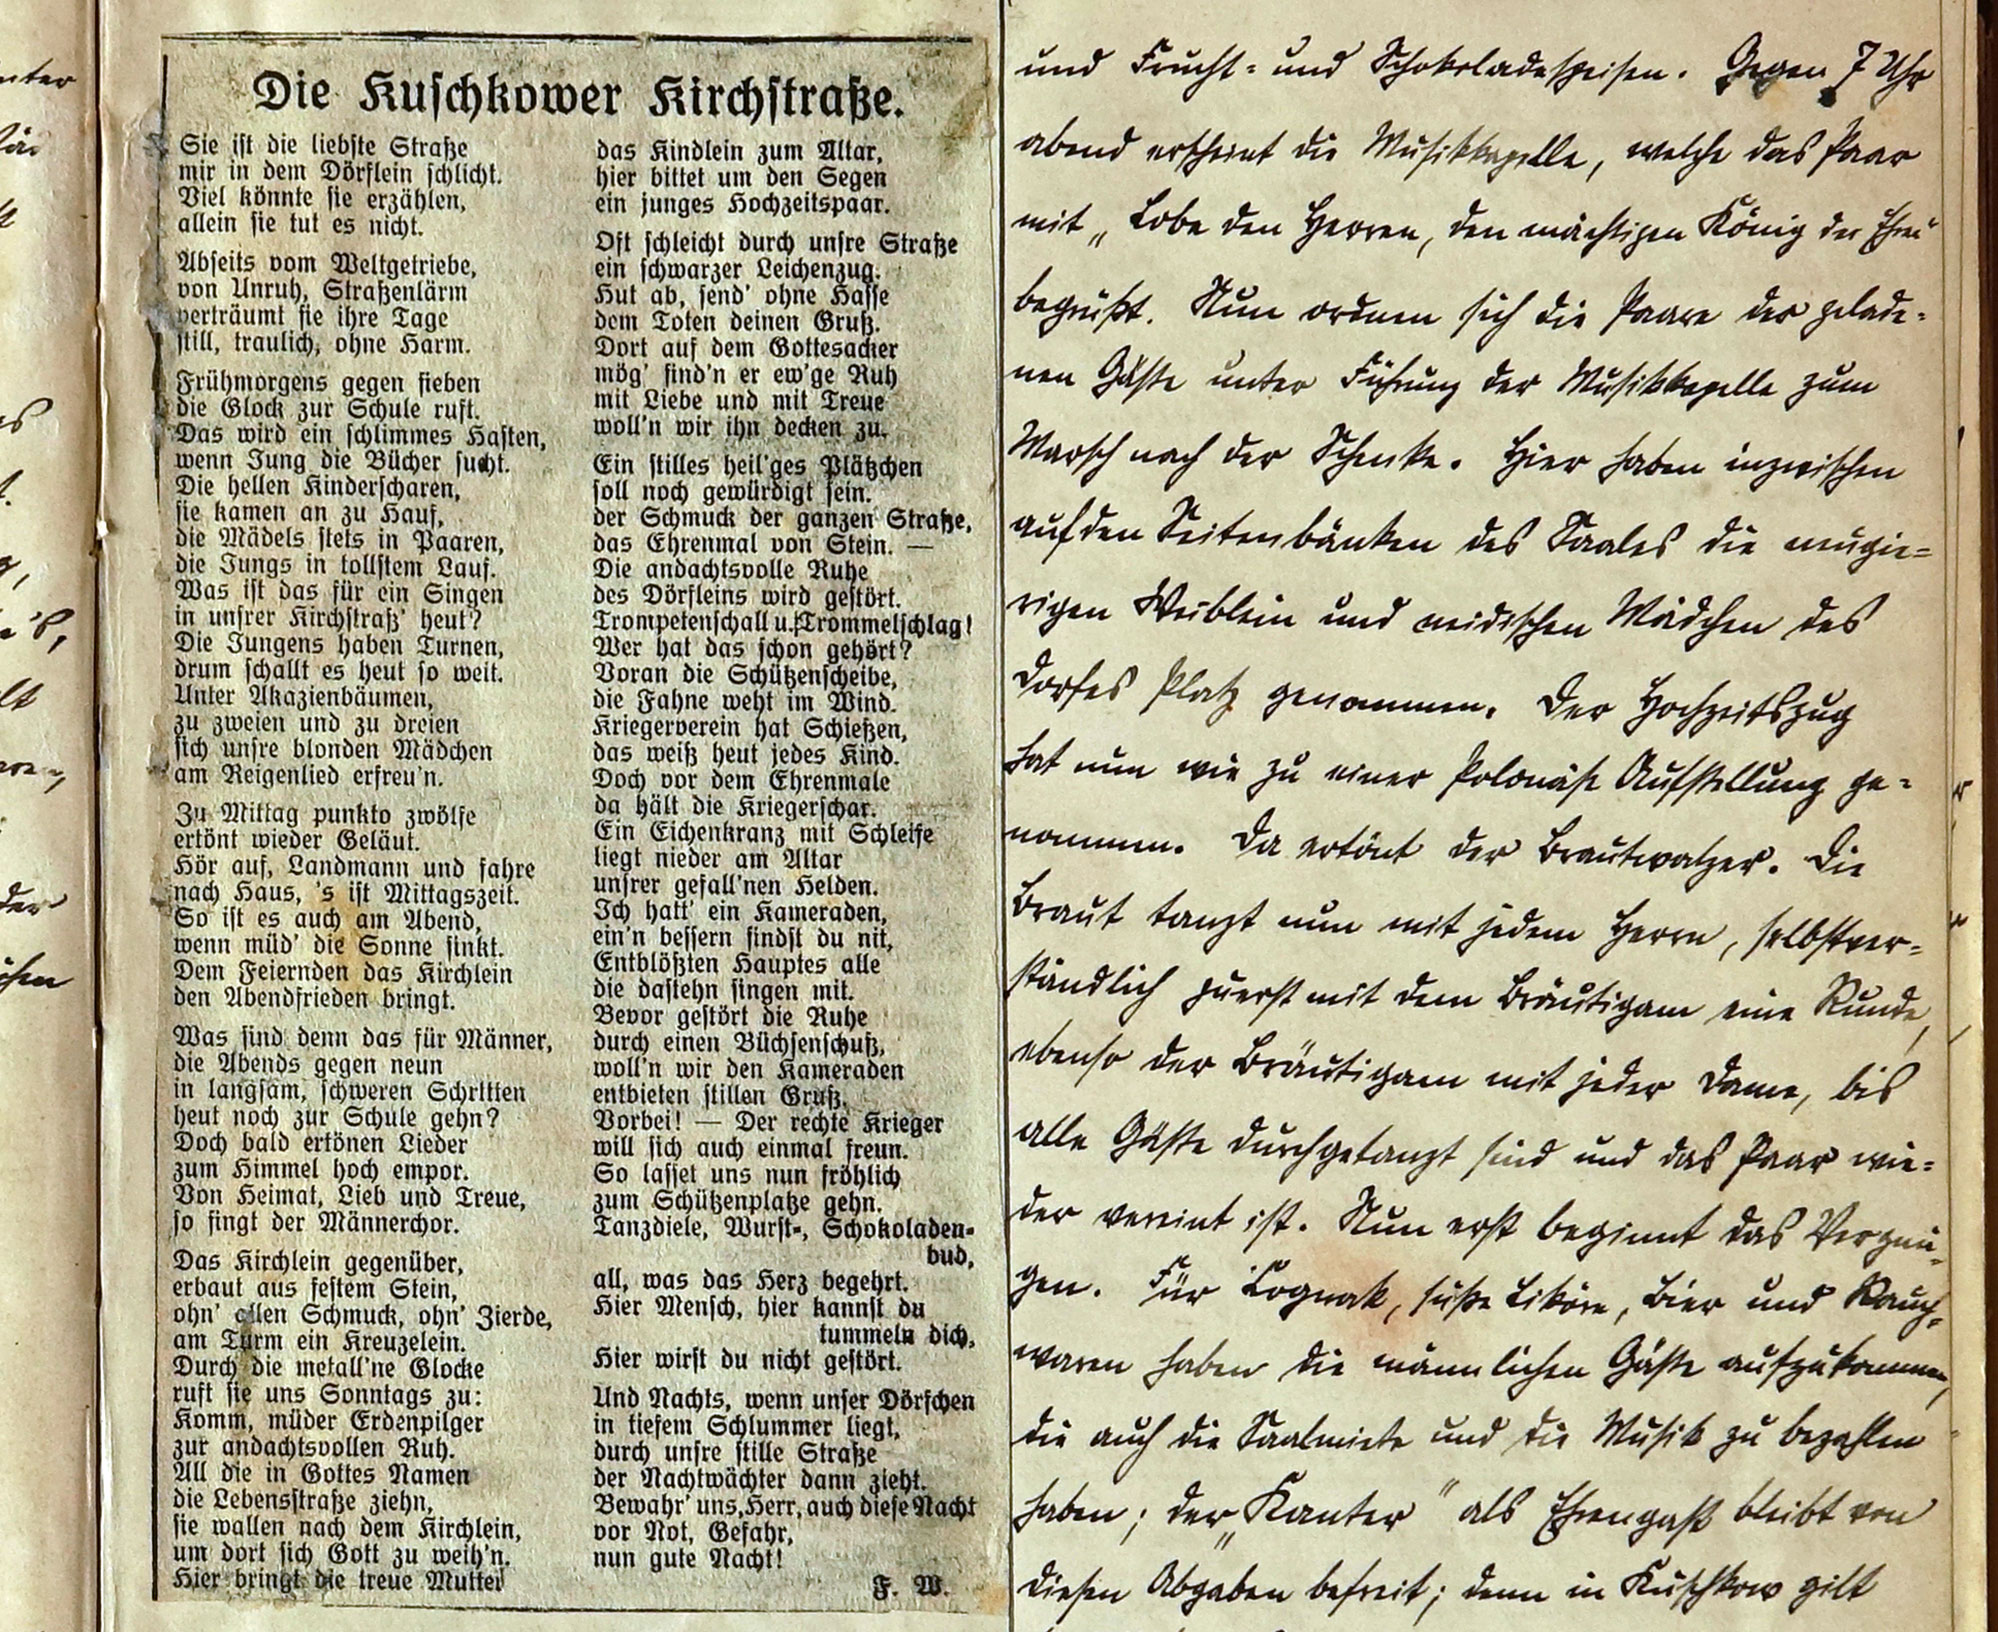 Die Kuschkower Kirchstraße.
Sie ist die liebste Straße
mir in dem Dörflein schlicht.
Viel könnte sie erzählen,
allein sie tut es nicht.
Abseits vom Weltgetriebe,
von Unruh, Straßenlärm
verträumt sie ihre Tage
still, traulich, ohne Harm.
Frühmorgens gegen sieben
die Glock zur Schule ruft.
Das wird ein schlimmes Hasten,
wenn Jung die Bücher sucht.
Die hellen Kinderscharen,
sie kamen an zu Hauf,
die Mädels stets in Paaren,
die Jungs in tollstem Lauf.
Was ist das für ein Singen
in unsrer Kirchstraß' heut?
Die Jungens haben Turnen,
drum schallt es heut so weit.
Unter Akazienbäumen,
zu zweien und zu dreien
sich unsre blonden Mädchen
am Reigenlied erfreu'n.
Zu Mittag punkto zwölfe
ertönt wieder Geläut.
Hör auf, Landmann und fahre
nach Haus, 's ist Mittagszeit.
So ist es auch am Abend,
wenn müd' die Sonne sinkt.
Dem Feiernden das Kirchlein
den Abendfrieden bringt.
Was sind denn das für Männer,
die Abends gegen neun
in langsam, schweren Schritten
heut noch zur Schule gehn?
Doch bald ertönen Lieder
zum Himmel hoch empor.
Von Heimat, Lieb und Treue,
so singt der Männerchor.
Das Kirchlein gegenüber,
erbaut aus festem Stein,
ohn' allen Schmuck, ohn' Zierde,
am Turm ein Kreuzelein.
Durch die metall'ne Glocke
ruft sie uns Sonntags zu:
Komm, müder Erdenpilger
zur andachtsvollen Ruh.
All die in Gottes Namen
die Lebensstraße ziehn,
sie wallen nach dem Kirchlein,
um dort sich Gott zu weih'n.
Hier bringt die treue Mutter
das Kindlein zum Altar,
hier bittet um den Segen
ein junges Hochzeitspaar.
Oft schleicht durch unsre Straße
ein schwarzer Leichenzug.
Hut ab, send' ohne Hasse
dem Toten deinen Gruß.
Dort auf dem Gottesacker
mög' find'n er ew'ge Ruh
mit Liebe und mit Treue
woll'n wir ihn decken zu.
Ein stilles heil'ges Plätzchen
soll noch gewürdigt sein.
der Schmuck der ganzen Straße,
das Ehrenmal von Stein. —
Die andachtsvolle Ruhe
des Dörfleins wird gestört.
Trompetenschall u. Trommelschlag!
Wer hat das schon gehört?
Voran die Schützenscheibe,
die Fahne weht im Wind.
Kriegerverein hat Schießen,
das weiß heut jedes Kind.
Doch vor dem Ehrenmale
da hält die Kriegerschar.
Ein Eichenkranz mit Schleife
liegt nieder am Altar
unsrer gefall'nen Helden.
Ich hatt' ein Kameraden,
ein'n bessern findst du nit,
Entblößten Hauptes alle
die dastehn singen mit.
Bevor gestört die Ruhe
durch einen Büchsenschuß,
woll'n wir den Kameraden
entbieten stillen Gruß.
Vorbei! — Der rechte Krieger
will sich auch einmal freun.
So lasset uns nun fröhlich
zum Schützenplatze gehn.
Tanzdiele, Wurst-, Schokoladen-
bud,
all, was das Herz begehrt.
Hier Mensch, hier kannst du
tummeln dich,
Hier wirst du nicht gestört.
Und Nachts, wenn unser Dörfchen
in tiefem Schlummer liegt,
durch unsre stille Straße
der Nachtwächter dann zieht.
Bewahr' uns, Herr, auch diese Nacht
vor Not, Gefahr,
nun gute Nacht!
F. W.
und Frucht- und Schokoladespeisen. Gegen 7 Uhr
abend erscheint die Musikkapelle, welche das Paar
mit „Lobe den Herren, den mächtigen König der Ehren"
begrüßt. Nun ordnen sich die Paare der gelade-
nen Gäste unter Führung der Musikkapelle zum
Marsch nach der Schenke. Hier haben inzwischen
auf den Seitenbänken des Saales die neugie-
rigen Weiblein und neidischen Mädchen des
Dorfes Platz genommen. Der Hochzeitszug
hat nun wie zu einer Polonäse Aufstellung ge-
nommen. Da ertönt der Brautwalzer. Die
Braut tanzt nun mit jedem Herrn, selbstver-
ständlich zuerst mit dem Bräutigam eine Runde,
ebenso der Bräutigam mit jeder Dame, bis
alle Gäste durchgetanzt sind und das Paar wie-
der vereint ist. Nun erst beginnt das Vergnü-
gen. Für Cognak, süße Liköre, Bier und Rauch-
waren haben die männlichen Gäste aufzukommen,
die auch die Saalmiete und die Musik zu bezahlen
haben; der „Kanter" als Ehrengast bleibt von
diesen Abgaben befreit; denn in Kuschkow gilt